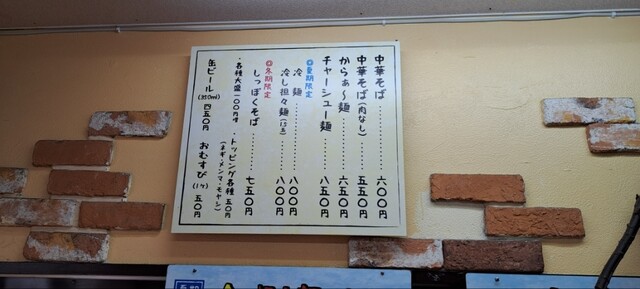 中華そば・・・・・・・・・・六〇〇円
中華そば(肉なし)・・・・五五〇円
からぁ~麺・・・・・・・・・・六五〇円
チャーシュー麺・・・・・・八五〇円
◎夏期限定
冷麺・・・・・・・・・・八〇〇円
冷し担々麺(ゴマ)・・・・八〇〇円
◎冬期限定
しっぽくそば・・・・・・七五〇円
・各種大盛一〇〇円増
・トッピング各種 五〇円
(ネギ・メンマ・モヤシ)
缶ビール(350ml) 四五〇円
おむすび(1ヶ) 五〇円